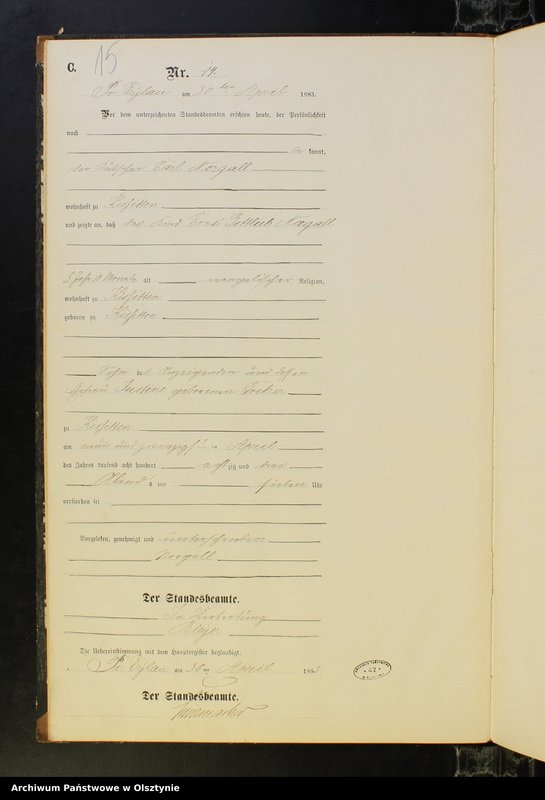 C.
15
Nr. 14.
Pr. Eylau am 30ten April 1883.
Vor dem unterzeichneten Standesbeamten erschien heute, der Persönlichkeit
nach
be kannt,
der Kutscher Carl Norgall
wohnhaft zu
und zeigte an, daß das Kind Ernst Gottlieb Norgall
Monate alt evangelischer Religion,
wohnhaft zu
geboren zu
Sohn des Anzeigenden und dessen
Ehefrau Justine geborenen
zu
am neun und zwanzigsten April
des Jahres tausend acht hundert acht zig und drei
Abends um sieben Uhr
verstorben sei
Vorgelesen, genehmigt und unterschrieben
Norgall
Der Standesbeamte.
In Vertretung
Die Uebereinstimmung mit dem Hauptregister beglaubigt.
Pr. Eylau am 30ten April 188
Der Standesbeamte.
Archiwum Państwowe w Olsztynie